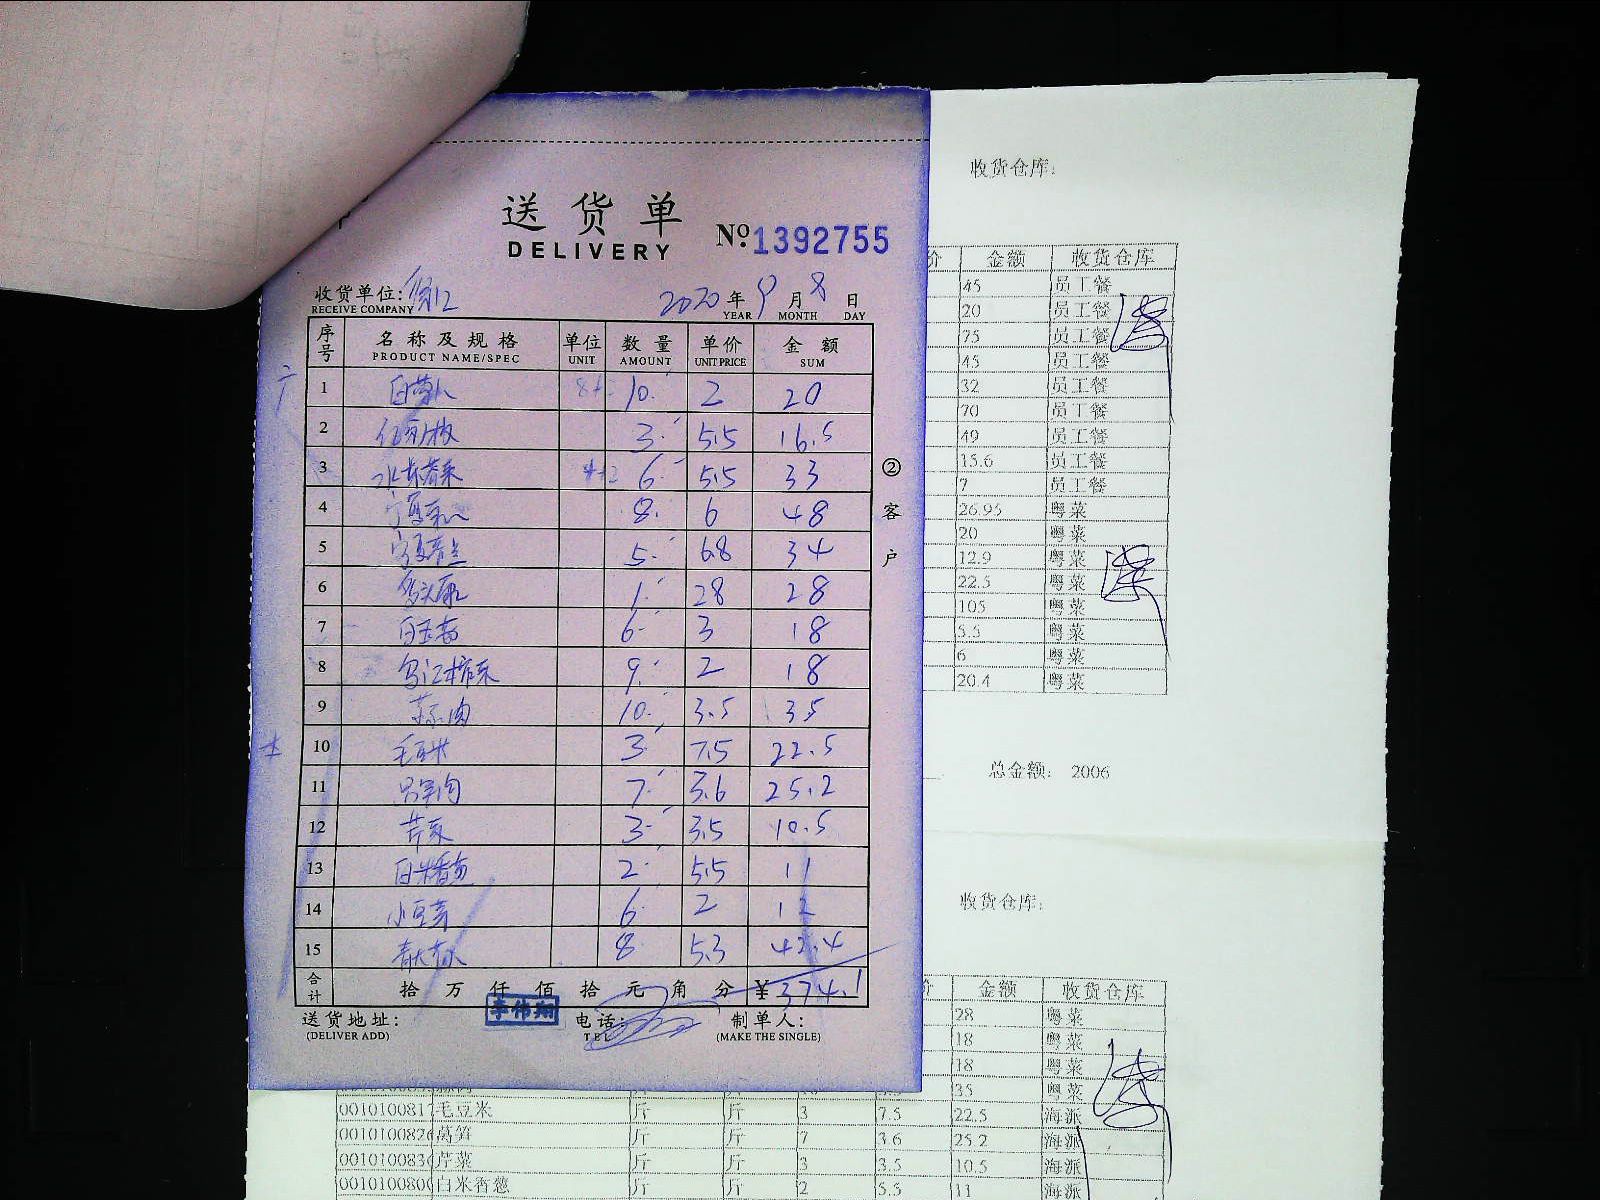 送货单
DELIVERY
№ 1392755
收货单位:
RECEIVE COMPANY
2020 年 9 月 8 日
YEAR MONTH DAY
序号 名称及规格 单位 数量 单价 金额
PRODUCT NAME/SPEC UNIT AMOUNT UNIT PRICE SUM
1 10 2 20
2 3 5.5 16.5
3 6 5.5 33
4 8 6 48
5 5 6.8 34
6 1 28 28
7 6 3 18
8 乌江榨菜 9 2 18
9 10 3.5 35
10 毛豆米 3 7.5 22.5
11 7 3.6 25.2
12 芹菜 3 3.5 10.5
13 白米香葱 2 5.5 11
14 6 2 12
15 8 5.3 42.4
合计 拾 万 仟 佰 拾 元 角 分 ¥374.1
送货地址: 李伟翔 电话: 制单人:
(DELIVER ADD) TEL (MAKE THE SINGLE)
②客户
收货仓库:
价 金额 收货仓库
45 员工餐
20 员工餐
75 员工餐
45 员工餐
32 员工餐
70 员工餐
49 员工餐
15.6 员工餐
7 员工餐
26.95 粤菜
20 粤菜
12.9 粤菜
22.5 粤菜
105 粤菜
5.5 粤菜
6 粤菜
20.4 粤菜
总金额: 2006
收货仓库:
价 金额 收货仓库
28 粤菜
18 粤菜
18 粤菜
35 粤菜
0010100817 毛豆米 斤 斤 3 7.5 22.5 海派
001010082 莴笋 斤 斤 7 3.6 25.2 海派
001010083 芹菜 斤 斤 3 3.5 10.5 海派
001010080 白米香葱 斤 斤 2 5.5 11 海派